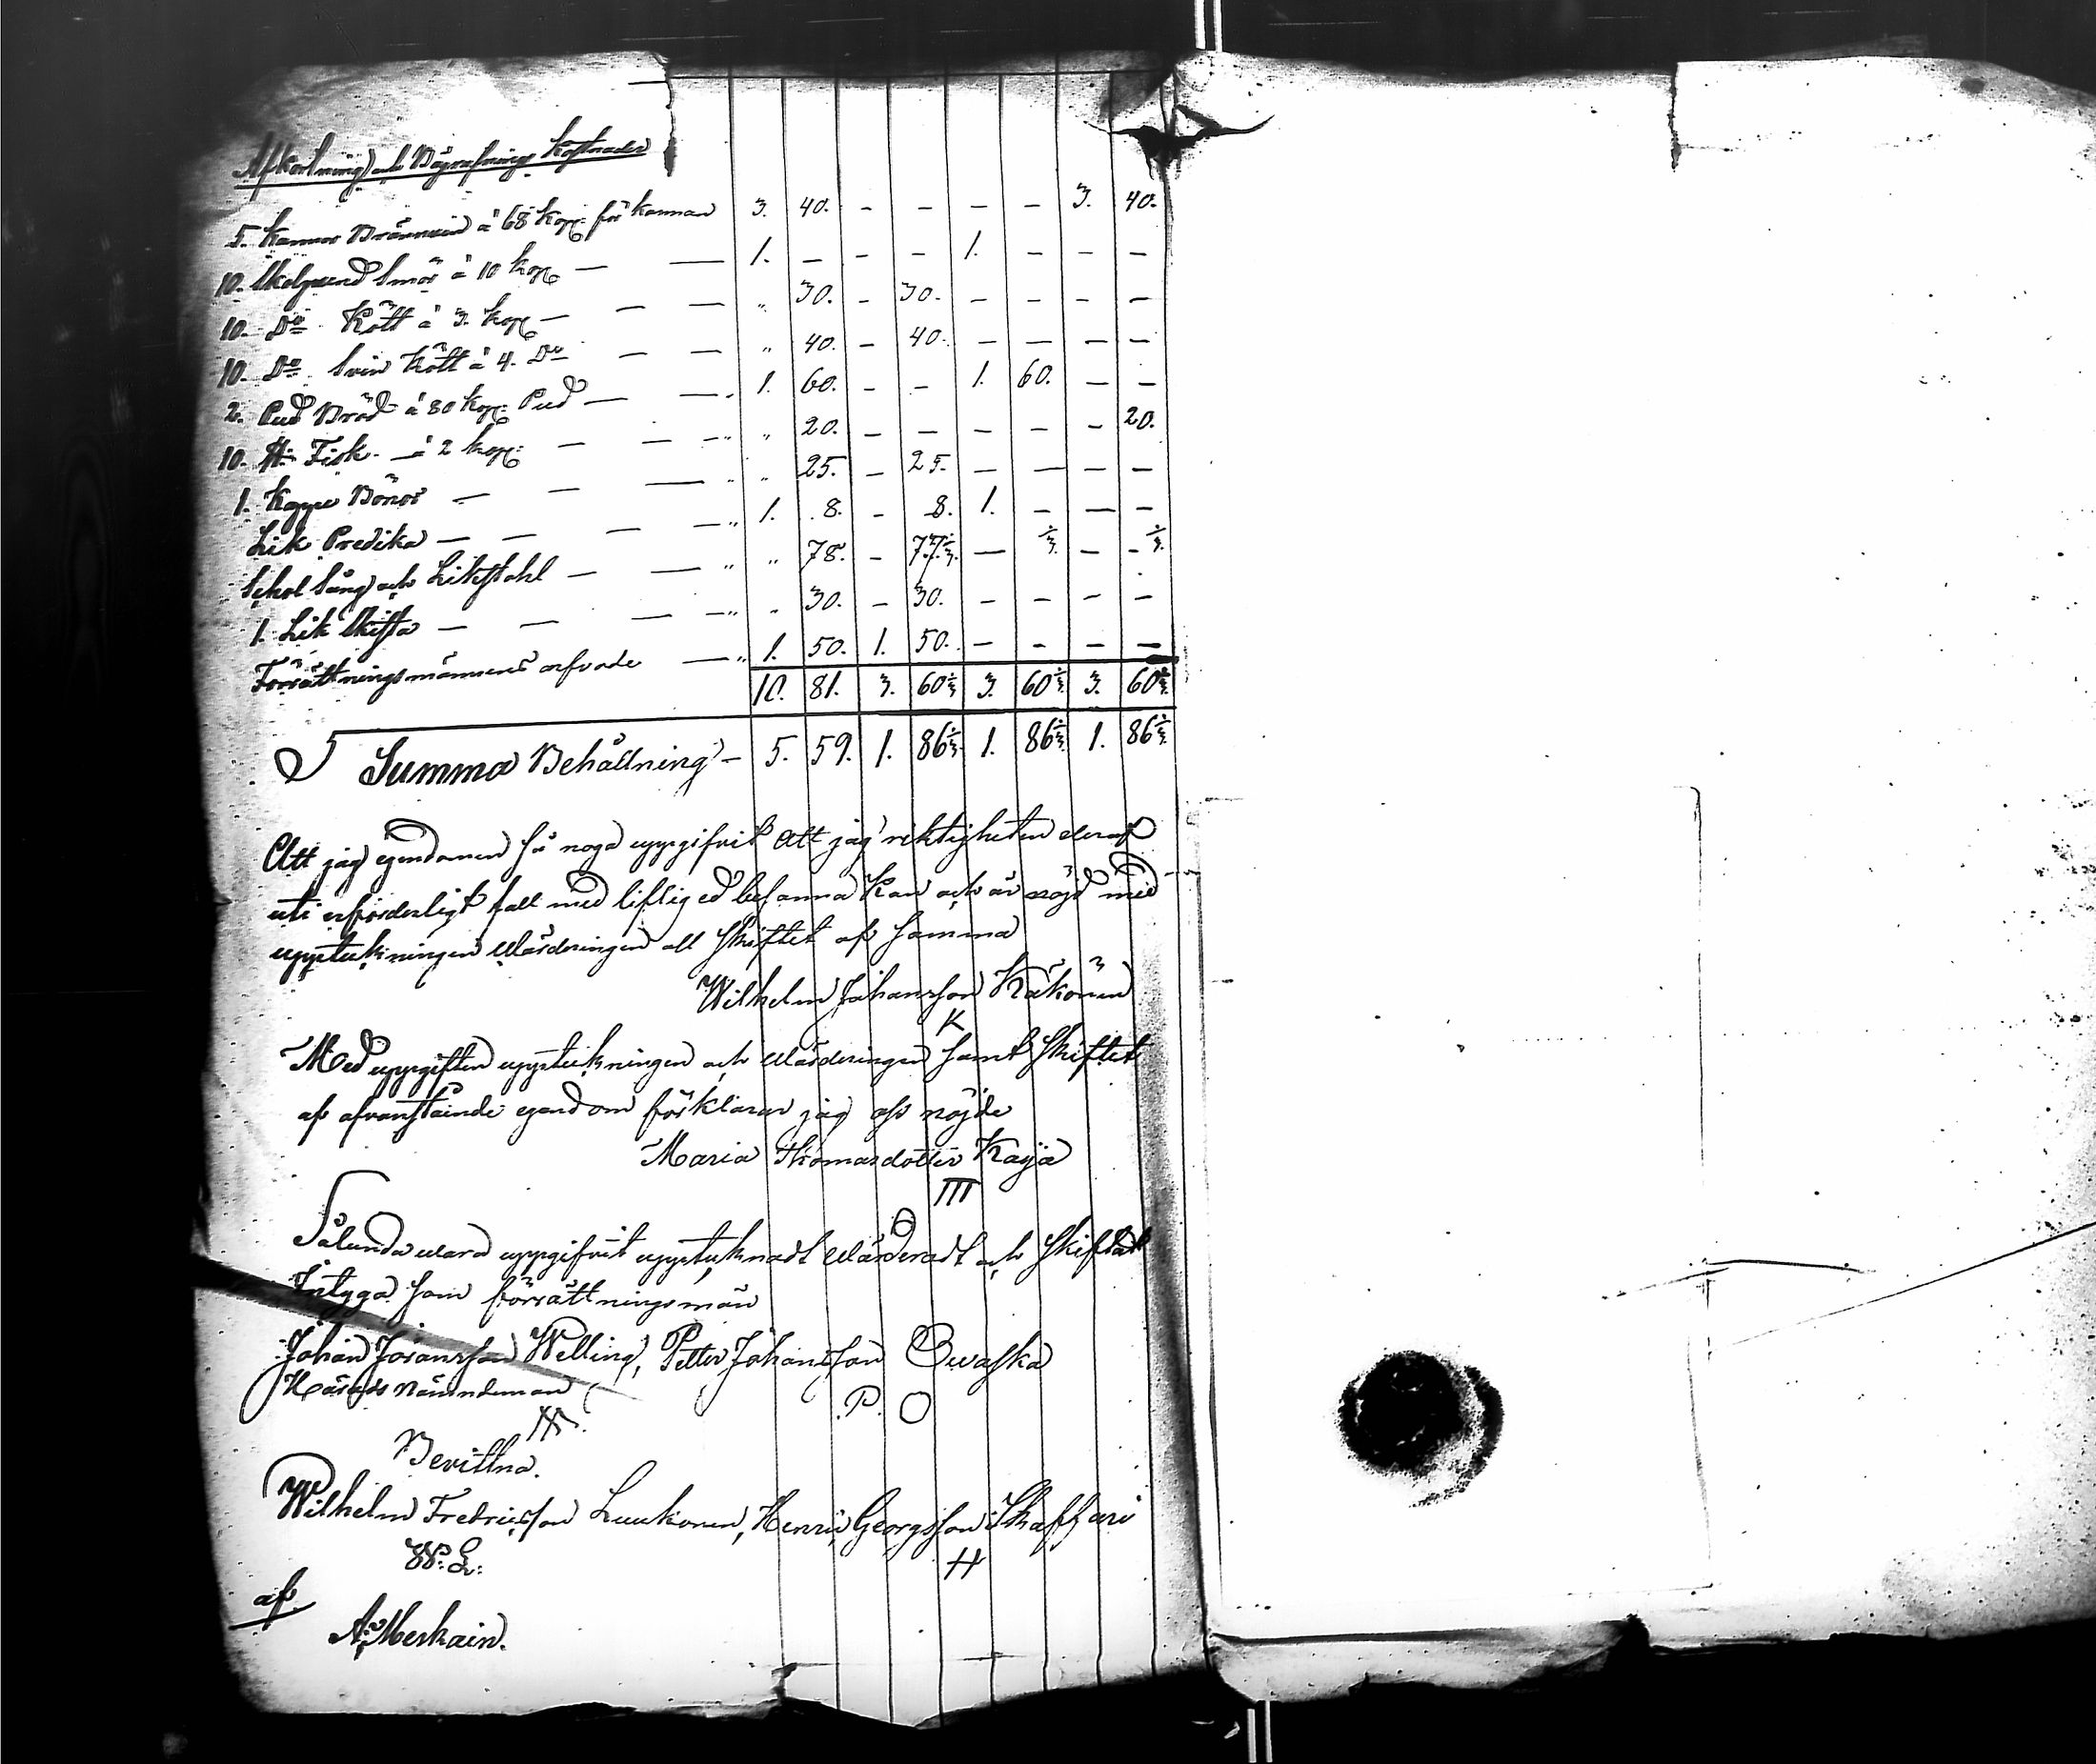 Afkortning och Begrafnings Kostnader
5. Kannor Brännvin á 68 Kop: för Kannan 3. 40. - - - - 3. 40.
10. Skalpund Smör á 10 kop — — 1. - - - 1. - - -
10. Do Kött á 3. kop — — — " 30. - 30. - - - -
10. Do Svin Kött á 4. Do — — " 40. - 40. - - - -
2. Pud Bröd á 80 kop: Pud — — 1. 60. - - 1. 60. - -
10. ℔ Fisk. — á 2 kop: — — — " 20. - - - - - 20.
1. Kappe Bönor — — — " 25. - 25. - - - -
Lik Predika — — — — 1. 8. - 8. 1. - - -
Schol Sång och Likstohl — — " 78. - 77 1/3. - 1/3. - - 1/3.
1. Lik Kista — — — — " 30. - 30. - - - -
Förrättningsmännens arfvode — 1. 50. 1. 50. - - - -
10. 81. 3. 60 1/3 3. 60 1/3. 3. 60 1/3.
Summa Behållning — 5. 59. 1. 86 1/3. 1. 86 1/3. 1. 86 1/3.
Att jag egendomen så noga uppgifvit att jag riktigheten deraf
uti erforderligt fall med liflig ed besanna kan och är nöjd med
uppteckningen värderingen all skiftet af samma
Wilhelm Johansson Käkönen
K
Med uppgiften uppteckningen och värderingen samt skiftet
af ofvanstående egendom förklarar jag oss nöjde
Maria Thomasdotter Karja
III
Sålunda vara uppgifvit upptecknadt värderadt och skiftadt
Intyga som förrättningsmän
Johan Jöransson Welling, Petter Johansson Owaska
Härads Nämndeman
P. O
Bevittna.
Wilhelm Fredricsson Luukonen, Henric Georgsson Skaffari
W: L: H
af.
A. Meskain.